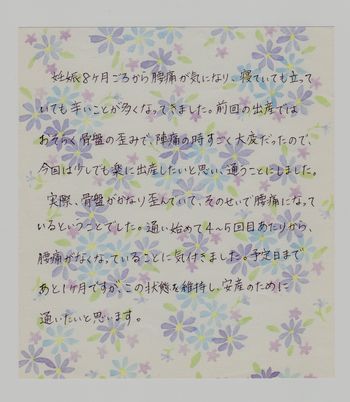 妊娠8ヶ月ごろから腰痛が気になり、寝ていても立って
いても辛いことが多くなってきました。前回の出産では
おそらく骨盤の歪みで、陣痛の時すごく大変だったので、
今回は少しでも楽に出産したいと思い、通うことにしました。
実際、骨盤がかなり歪んでいて、そのせいで腰痛になって
いるということでした。通い始めて4〜5回目あたりから、
腰痛がなくなっていることに気付きました。予定日まで
あと1ヶ月ですが、この状態を維持し、安産のために
通いたいと思います。